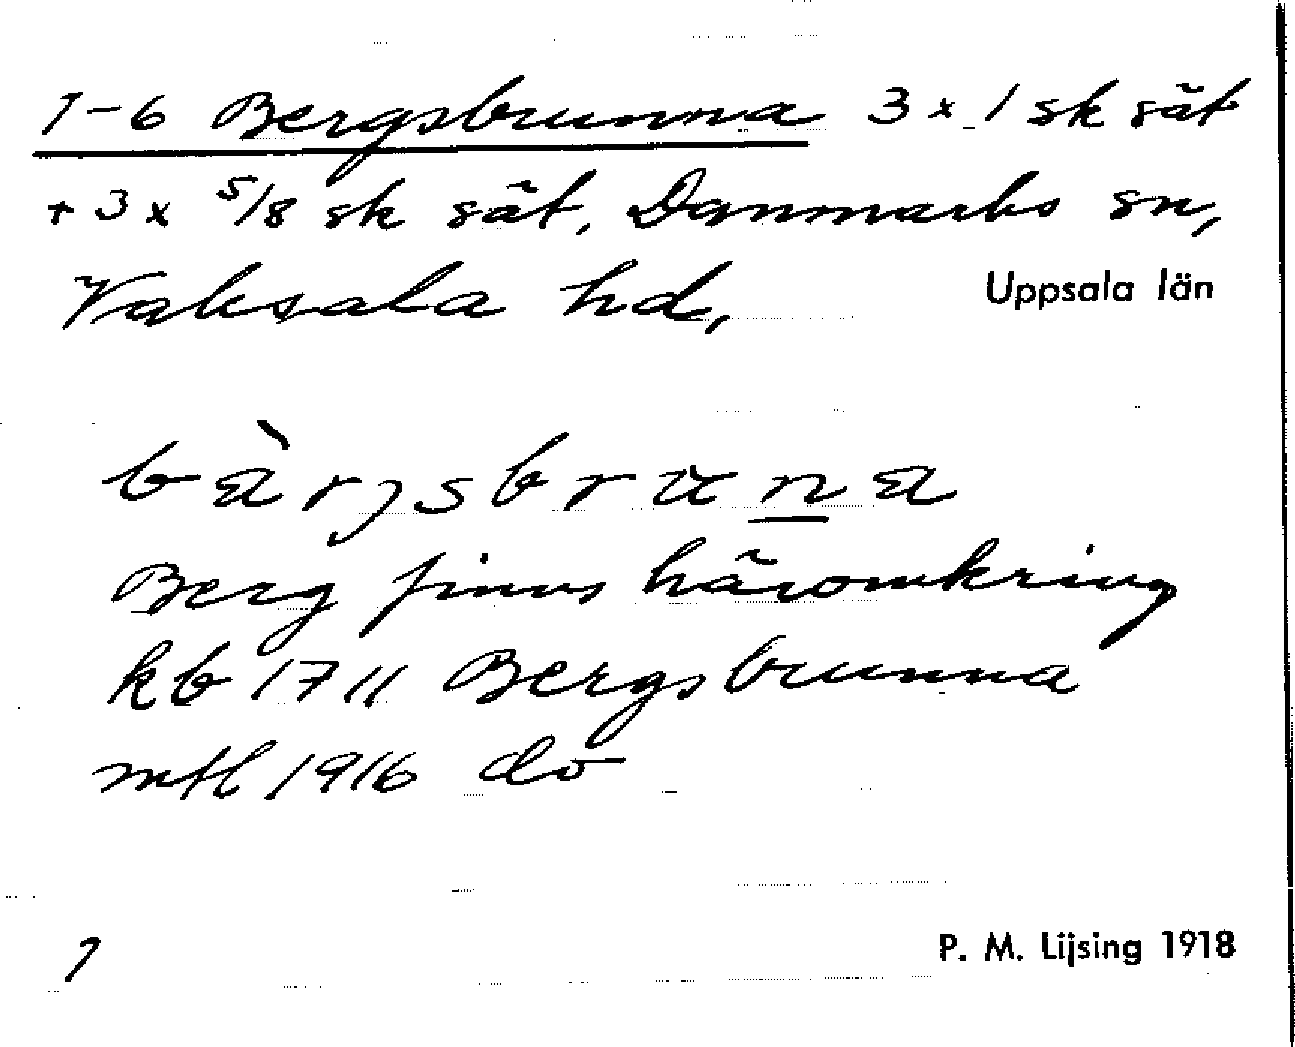 1-6 Bergsbrunna 3 x 1 sk sät
+ 3 x 5/8 sk sät, Danmarks sn,
Vaksala hd, Uppsala län
bàrjsbruna
Berg finns häromkring
kb 1711 Bergsbrunna
mtl 1916 do
1 P. M. Lijsing 1918